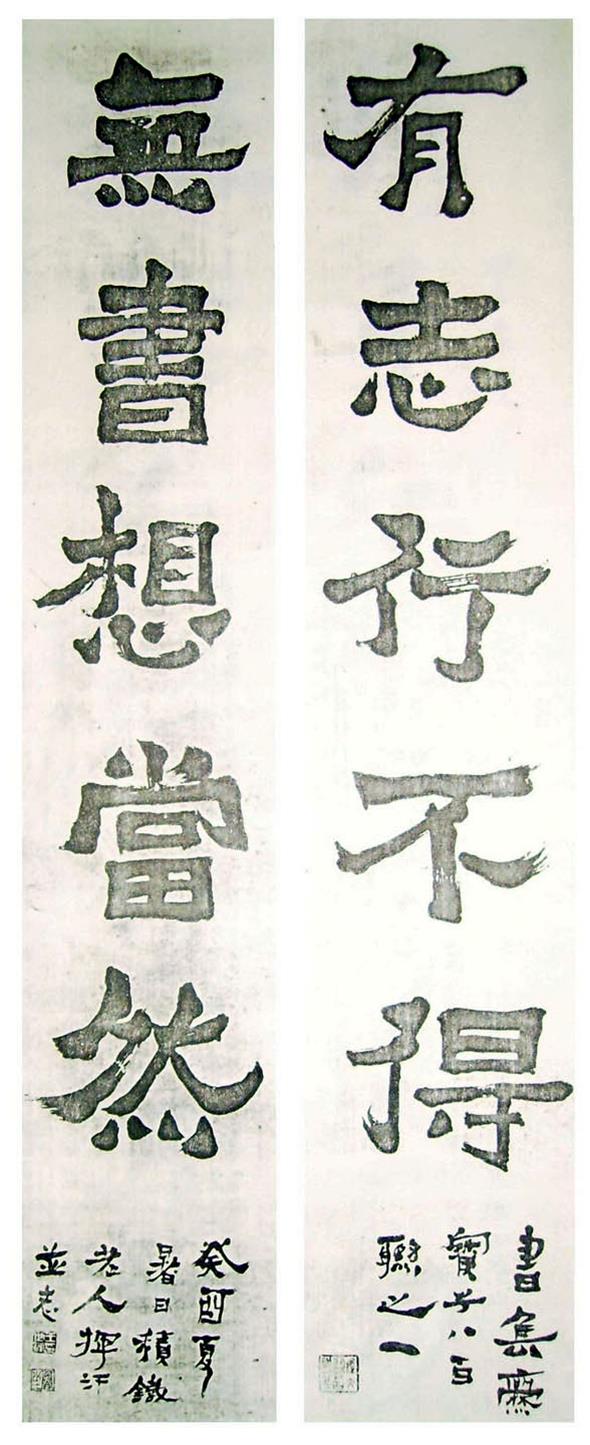 有志行不得
書集爨
寶子八百
聯之一
無書想當然
癸酉夏
暑日積鐵
老人揮汗
並志